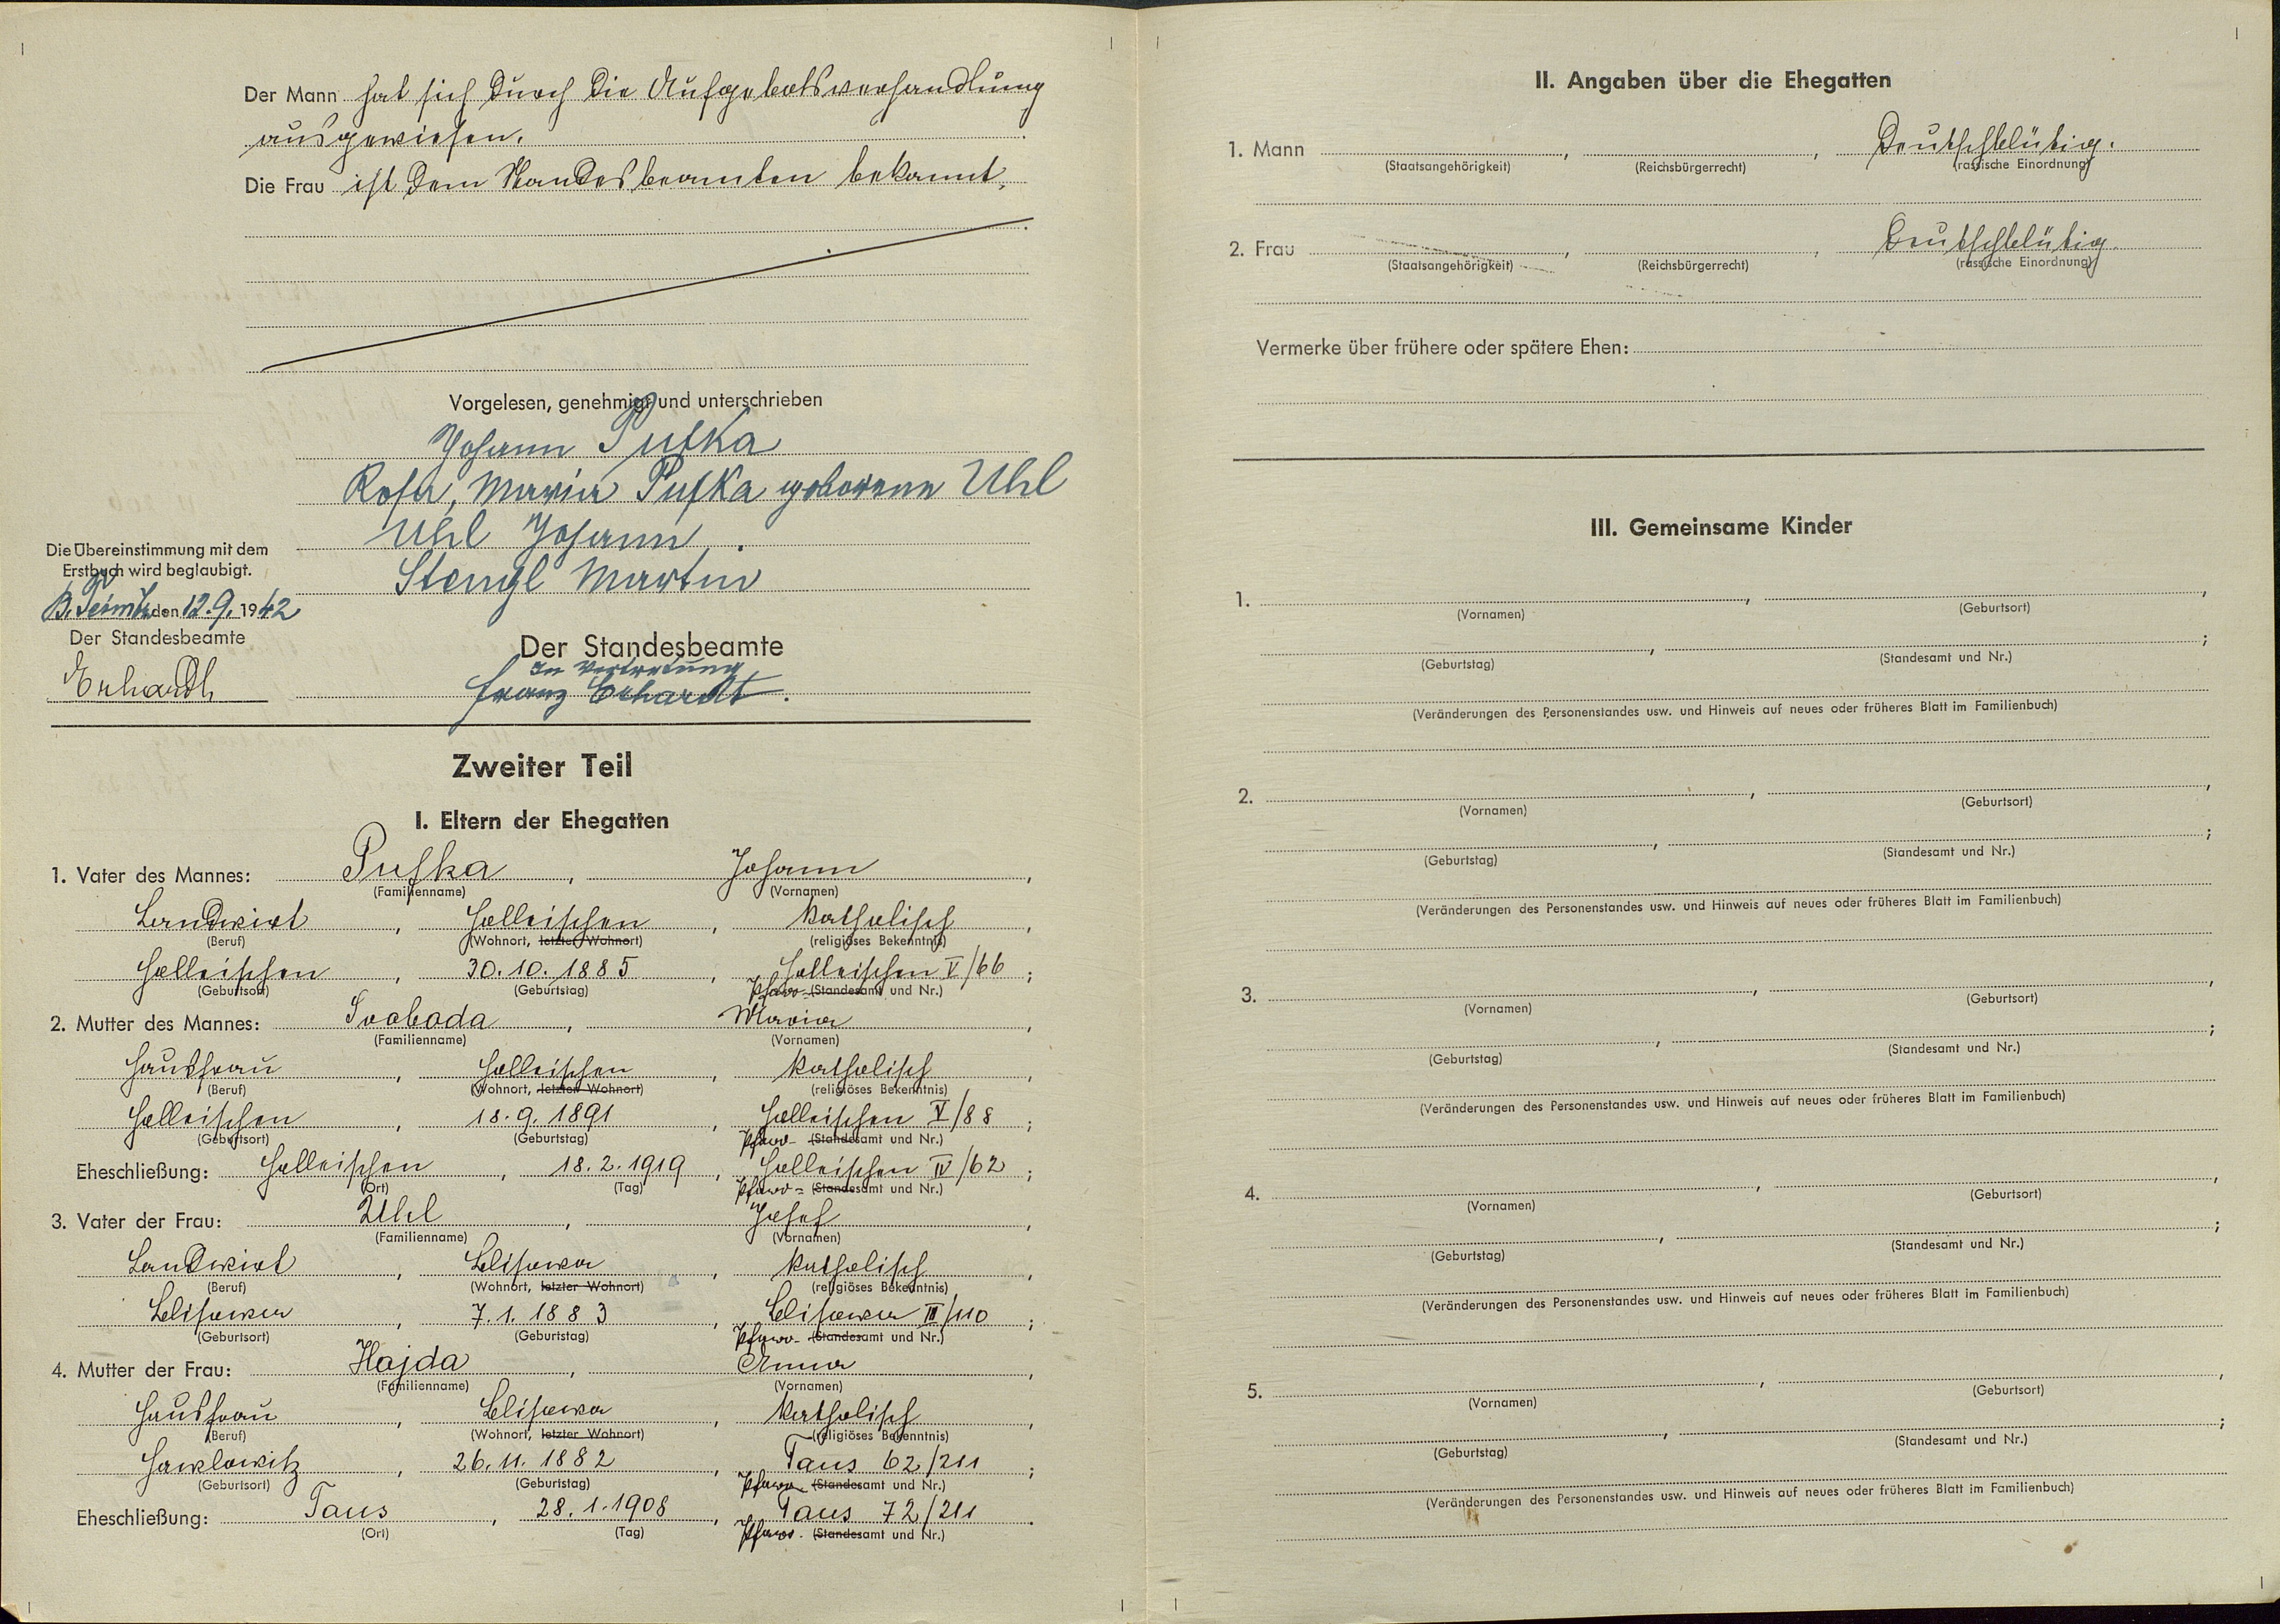 Der Mann hat sich durch die Aufgebotsverhandlung
ausgewiesen.
Die Frau ist dem Standesbeamten bekannt.
Vorgelesen, genehmigt und unterschrieben
Johann Pufka
Rosa, Maria Pufka geborene Uhl
Uhl Johann.
Stengl Martin
Die Übereinstimmung mit dem
Erstbuch wird beglaubigt.
den 12.9. 1942
Der Standesbeamte
Erhardt
Der Standesbeamte
In Vertretung
Franz Erhardt.
Zweiter Teil
I. Eltern der Ehegatten
1. Vater des Mannes: Pufka, Johann,
(Familienname) (Vornamen)
Landwirt, Holleischen, katholisch,
(Beruf) (Wohnort, letzter Wohnort) (religiöses Bekenntnis)
Holleischen, 30.10.1885, Holleischen V/66;
(Geburtsort) (Geburtstag) Pfarr- (Standesamt und Nr.)
2. Mutter des Mannes: Svoboda, Maria,
(Familienname) (Vornamen)
Hausfrau, Holleischen, katholisch,
(Beruf) (Wohnort, letzter Wohnort) (religiöses Bekenntnis)
Holleischen, 18.9.1891, Holleischen V/88;
(Geburtsort) (Geburtstag) Pfarr- (Standesamt und Nr.)
Eheschließung: Holleischen, 18.2.1919, Holleischen IV/62;
(Ort) (Tag) Pfarr- (Standesamt und Nr.)
3. Vater der Frau: Uhl, Josef,
(Familienname) (Vornamen)
Landwirt, Blisowa, katholisch,
(Beruf) (Wohnort, letzter Wohnort) (religiöses Bekenntnis)
Blisowa, 7.1.1883, Blisowa III/110;
(Geburtsort) (Geburtstag) Pfarr- (Standesamt und Nr.)
4. Mutter der Frau: Hajda, Anna,
(Familienname) (Vornamen)
Hausfrau, Blisowa, katholisch,
(Beruf) (Wohnort, letzter Wohnort) (religiöses Bekenntnis)
Hawlowitz, 26.11.1882, Taus 62/211;
(Geburtsort) (Geburtstag) Pfarr- (Standesamt und Nr.)
Eheschließung: Taus, 28.1.1908, Taus 72/211.
(Ort) (Tag) Pfarr- (Standesamt und Nr.)
II. Angaben über die Ehegatten
1. Mann , , Deutschblütig.
(Staatsangehörigkeit) (Reichsbürgerrecht) (rassische Einordnung)
2. Frau , , Deutschblütig.
(Staatsangehörigkeit) (Reichsbürgerrecht) (rassische Einordnung)
Vermerke über frühere oder spätere Ehen:
III. Gemeinsame Kinder
1. , ,
(Vornamen) (Geburtsort)
, ;
(Geburtstag) (Standesamt und Nr.)
(Veränderungen des Personenstandes usw. und Hinweis auf neues oder früheres Blatt im Familienbuch)
2. , ,
(Vornamen) (Geburtsort)
, ;
(Geburtstag) (Standesamt und Nr.)
(Veränderungen des Personenstandes usw. und Hinweis auf neues oder früheres Blatt im Familienbuch)
3. , ,
(Vornamen) (Geburtsort)
, ;
(Geburtstag) (Standesamt und Nr.)
(Veränderungen des Personenstandes usw. und Hinweis auf neues oder früheres Blatt im Familienbuch)
4. , ,
(Vornamen) (Geburtsort)
, ;
(Geburtstag) (Standesamt und Nr.)
(Veränderungen des Personenstandes usw. und Hinweis auf neues oder früheres Blatt im Familienbuch)
5. , ,
(Vornamen) (Geburtsort)
, ;
(Geburtstag) (Standesamt und Nr.)
(Veränderungen des Personenstandes usw. und Hinweis auf neues oder früheres Blatt im Familienbuch)